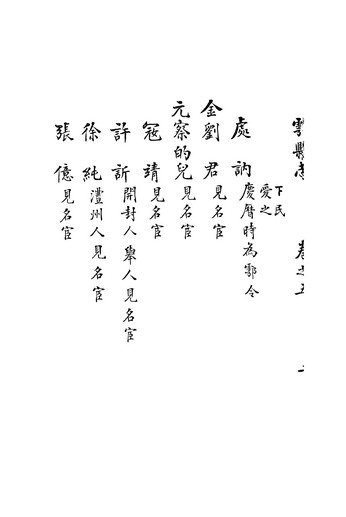 下民
愛之
處訥慶曆時為鄠令
金劉君見名宦
元察的兒見名宦
寇靖見名宦
許訢開封人舉人見名宦
徐純澧州人見名宦
張億見名宦